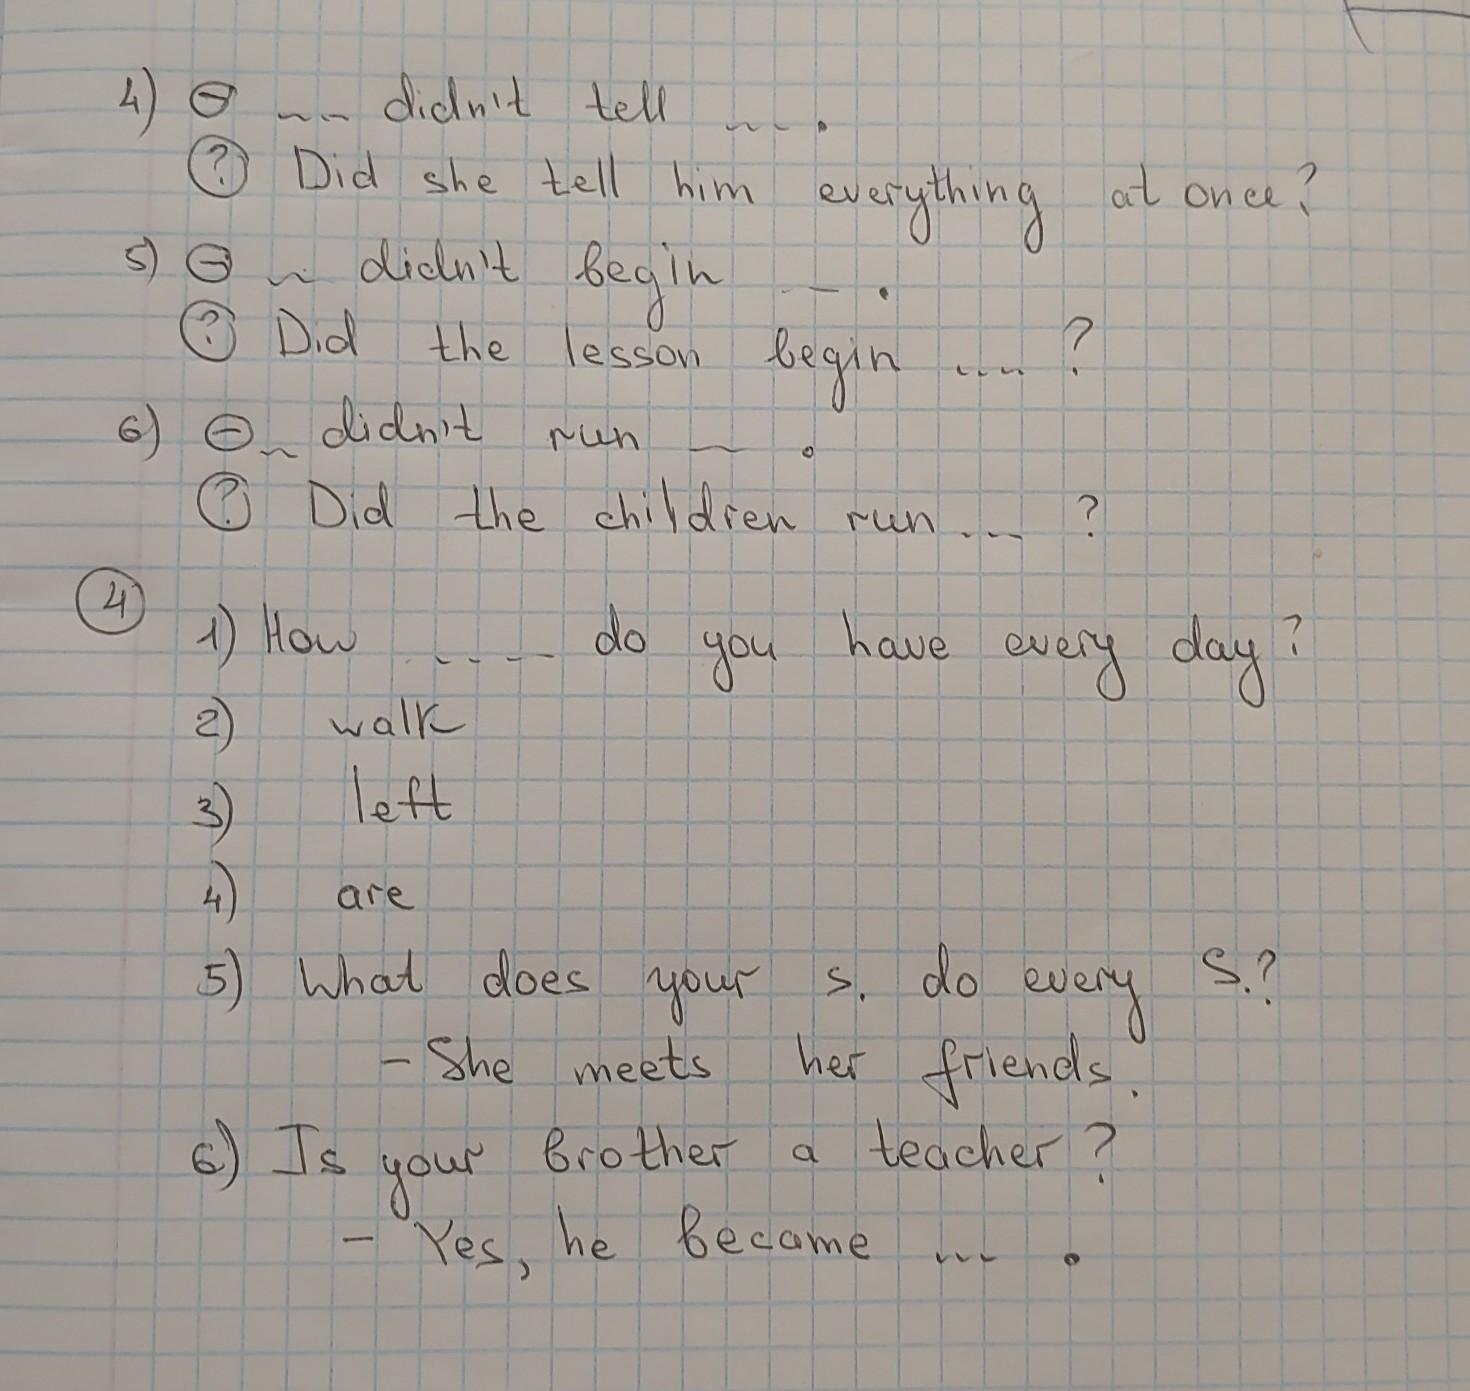 4) ⊖ --- didn't tell --- .
? Did she tell him everything at once?
5) ⊖ ~ didn't begin -- .
? Did the lesson begin .... ?
6) ⊖ ~ didn't run — .
? Did the children run ... ?
4
1) How .... do you have every day?
2) walk
3) left
4) are
5) What does your s. do every S.?
- She meets her friends.
6) Is your brother a teacher?
- Yes, he became ... .